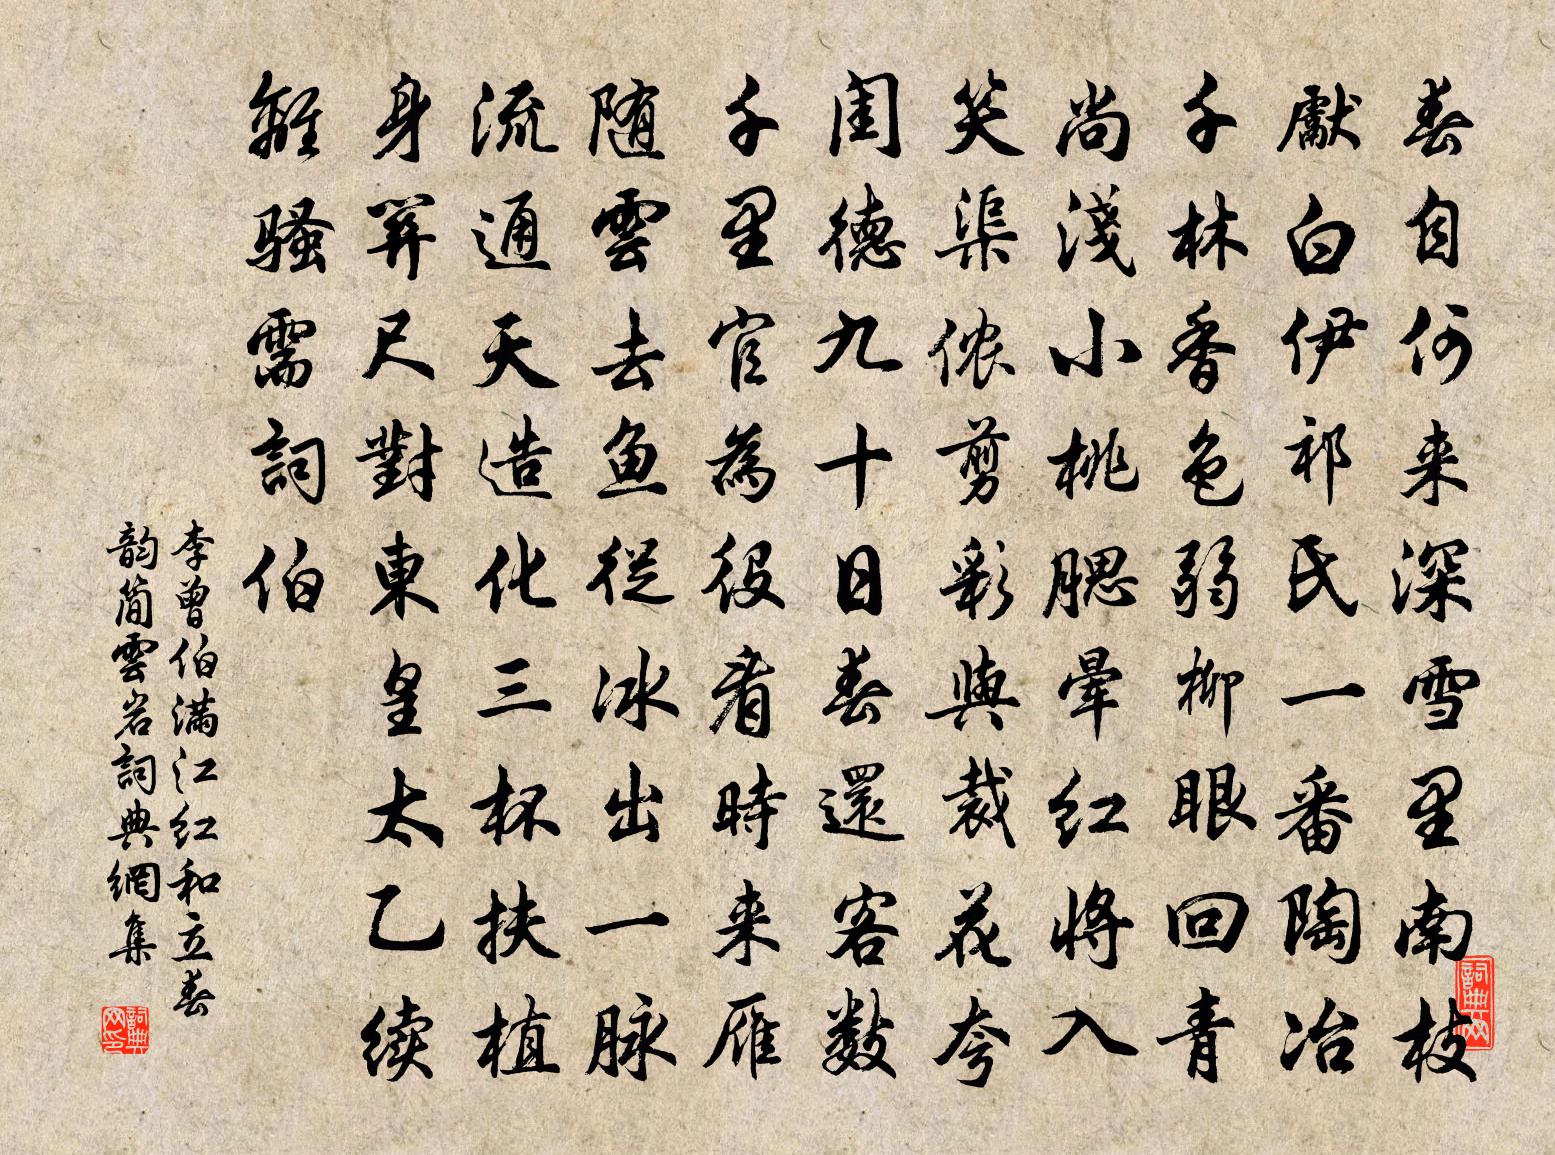 春自何来深雪里南枝
獻白伊祁氏一番陶冶
千林香色弱柳眼回青
尚淺小桃腮暈红將入
笑渠侬剪彩與裁花夸
闺德九十日春還客數
千里官為役看時来雁
随雲去鱼從冰出一脉
流通天造化三杯扶植
身算尺對東皇太乙续
離骚需詞伯
李曾伯满江红和立春
韵簡雲岩詞典網集
詞典网